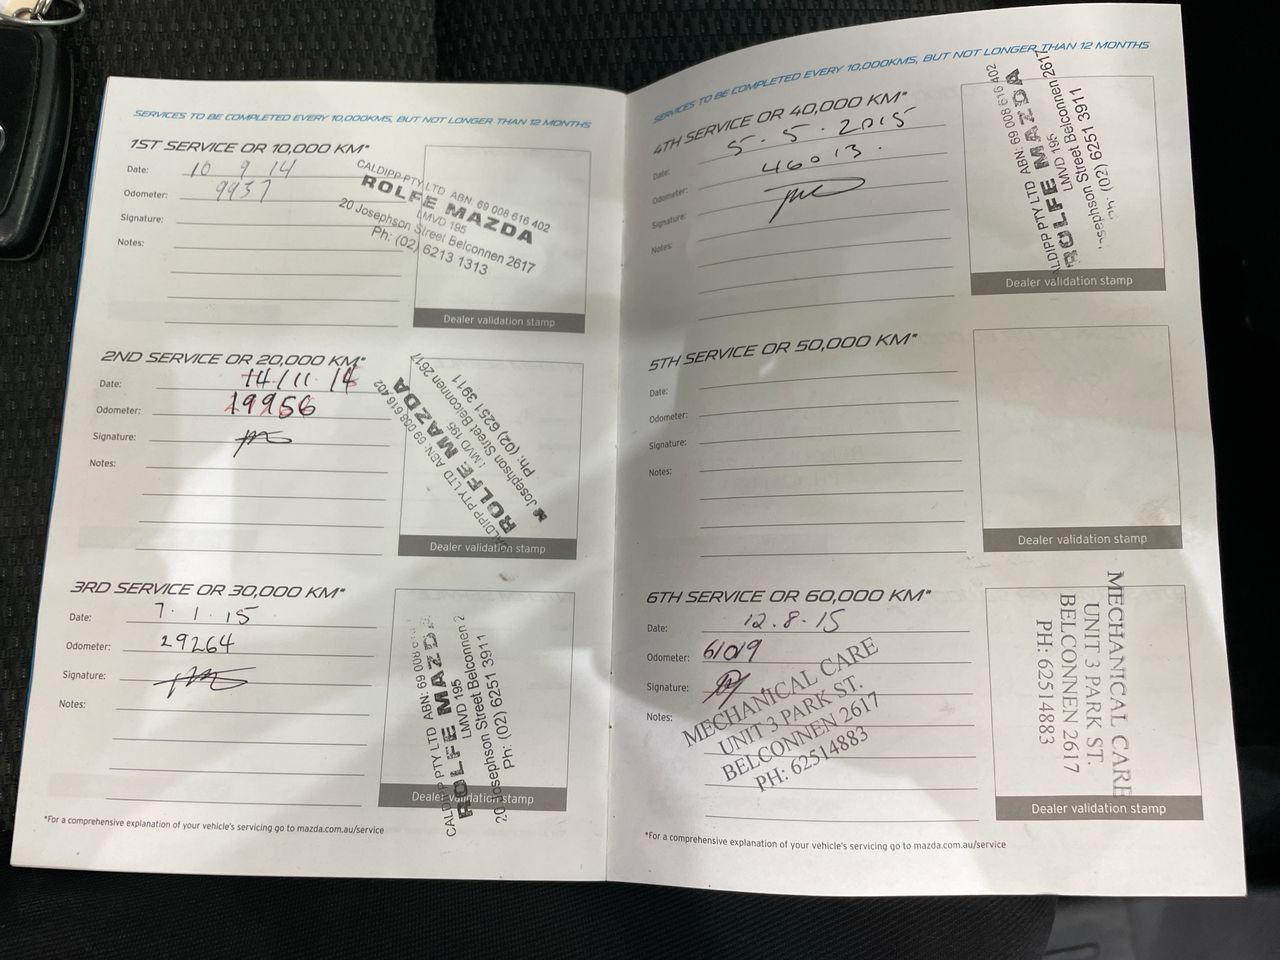 SERVICES TO BE COMPLETED EVERY 10,000KMS, BUT NOT LONGER THAN 12 MONTHS
1ST SERVICE OR 10,000 KM*
Date: 10 9 14
Odometer: 9937
Signature:
Notes:
CALDIPP PTY LTD ABN: 69 008 616 402
ROLFE MAZDA
LMVD 195
20 Josephson Street Belconnen 2617
Ph: (02) 6213 1313
Dealer validation stamp
2ND SERVICE OR 20,000 KM*
Date: 14/11 14
Odometer: 19956
Signature:
Notes:
ALDIPP PTY LTD ABN: 69 008 616 402
ROLFE MAZDA
LMVD 195
Josephson Street Belconnen 2617
Ph: (02) 6251 3911
Dealer validation stamp
3RD SERVICE OR 30,000 KM*
Date: 7.1.15
Odometer: 29264
Signature:
Notes:
CALDIPP PTY LTD ABN: 69 008
ROLFE MAZD
LMVD 195
20 Josephson Street Belconnen 2
Ph: (02) 6251 3911
Dealer validation stamp
*For a comprehensive explanation of your vehicle's servicing go to mazda.com.au/service
SERVICES TO BE COMPLETED EVERY 10,000KMS, BUT NOT LONGER THAN 12 MONTHS
4TH SERVICE OR 40,000 KM*
Date: 5.5.2015
Odometer: 46013.
Signature:
Notes:
ALDIPP PTY LTD ABN: 69 008 616 402
ROLFE MAZDA
LMVD 195
osephson Street Belconnen 2617
Ph: (02) 6251 3911
Dealer validation stamp
5TH SERVICE OR 50,000 KM*
Date:
Odometer:
Signature:
Notes:
Dealer validation stamp
6TH SERVICE OR 60,000 KM*
Date: 12.8.15
Odometer: 61019
Signature:
Notes:
MECHANICAL CARE
UNIT 3 PARK ST.
BELCONNEN 2617
PH: 62514883
MECHANICAL CARE
UNIT 3 PARK ST.
BELCONNEN 2617
PH: 62514883
Dealer validation stamp
*For a comprehensive explanation of your vehicle's servicing go to mazda.com.au/service